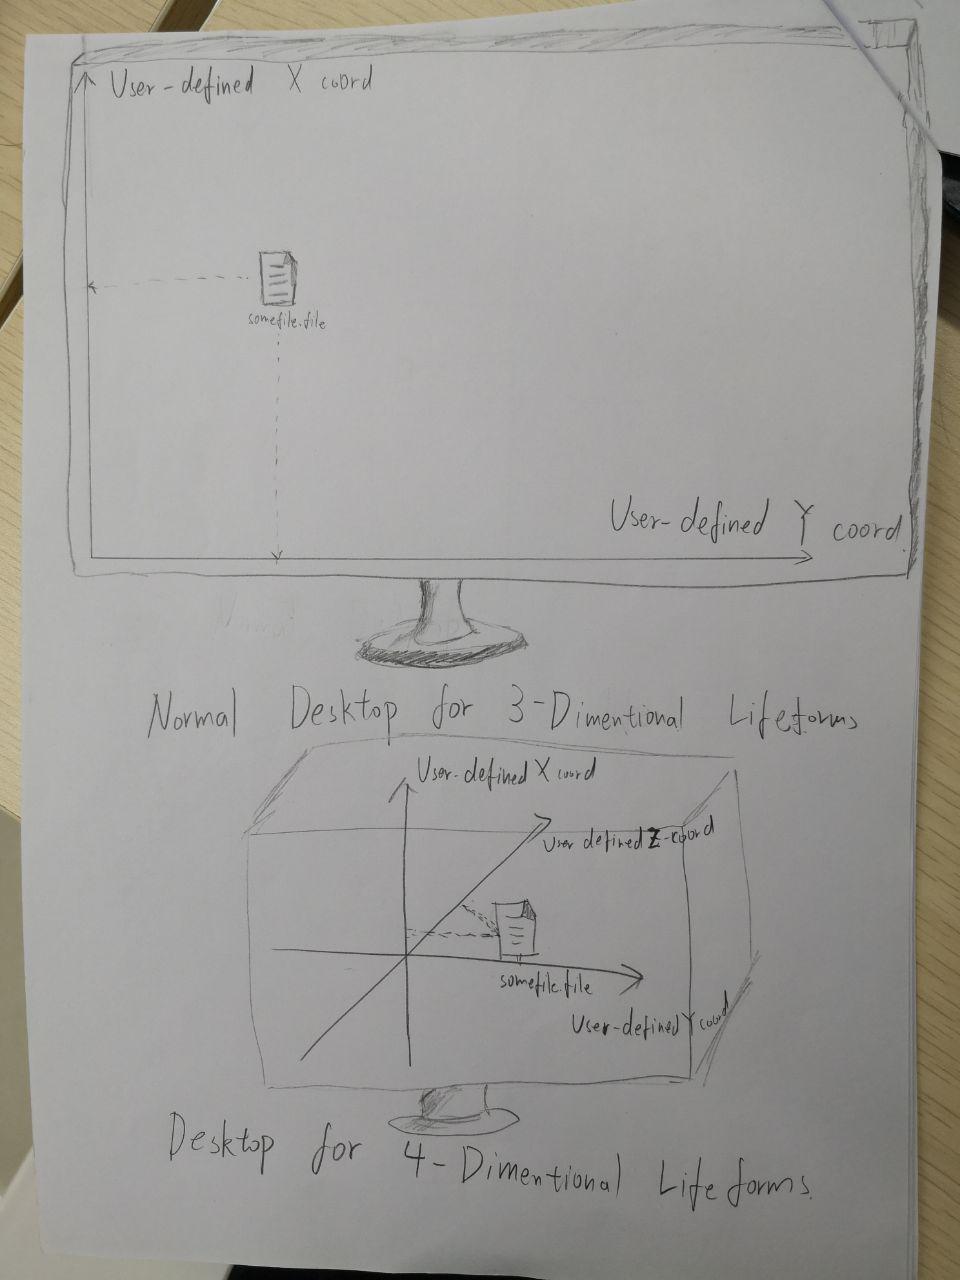 User-defined X coord
somefile.file
User-defined Y coord.
Normal Desktop for 3-Dimentional Lifeforms
User-defined X coord
User defined Z-coord
somefile.file
User-defined Y coord
Desktop for 4-Dimentional Lifeforms.